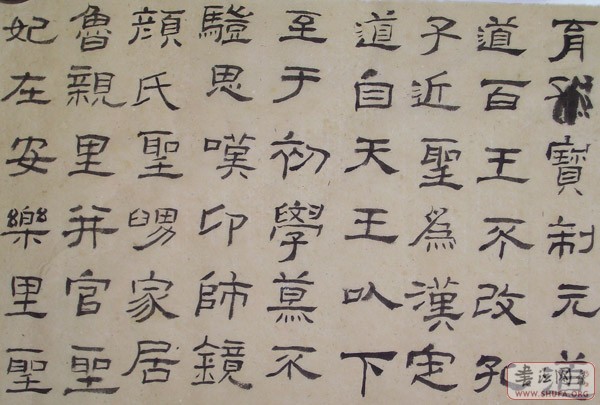 育寶制元
道百王不改孔
子近聖爲漢定
道自天王以下
至于初學莫不
思嘆卬師鏡
顏氏聖舅家居
魯親里并官聖
妃在安樂里聖
书法网
WWW.SHUFA.ORG